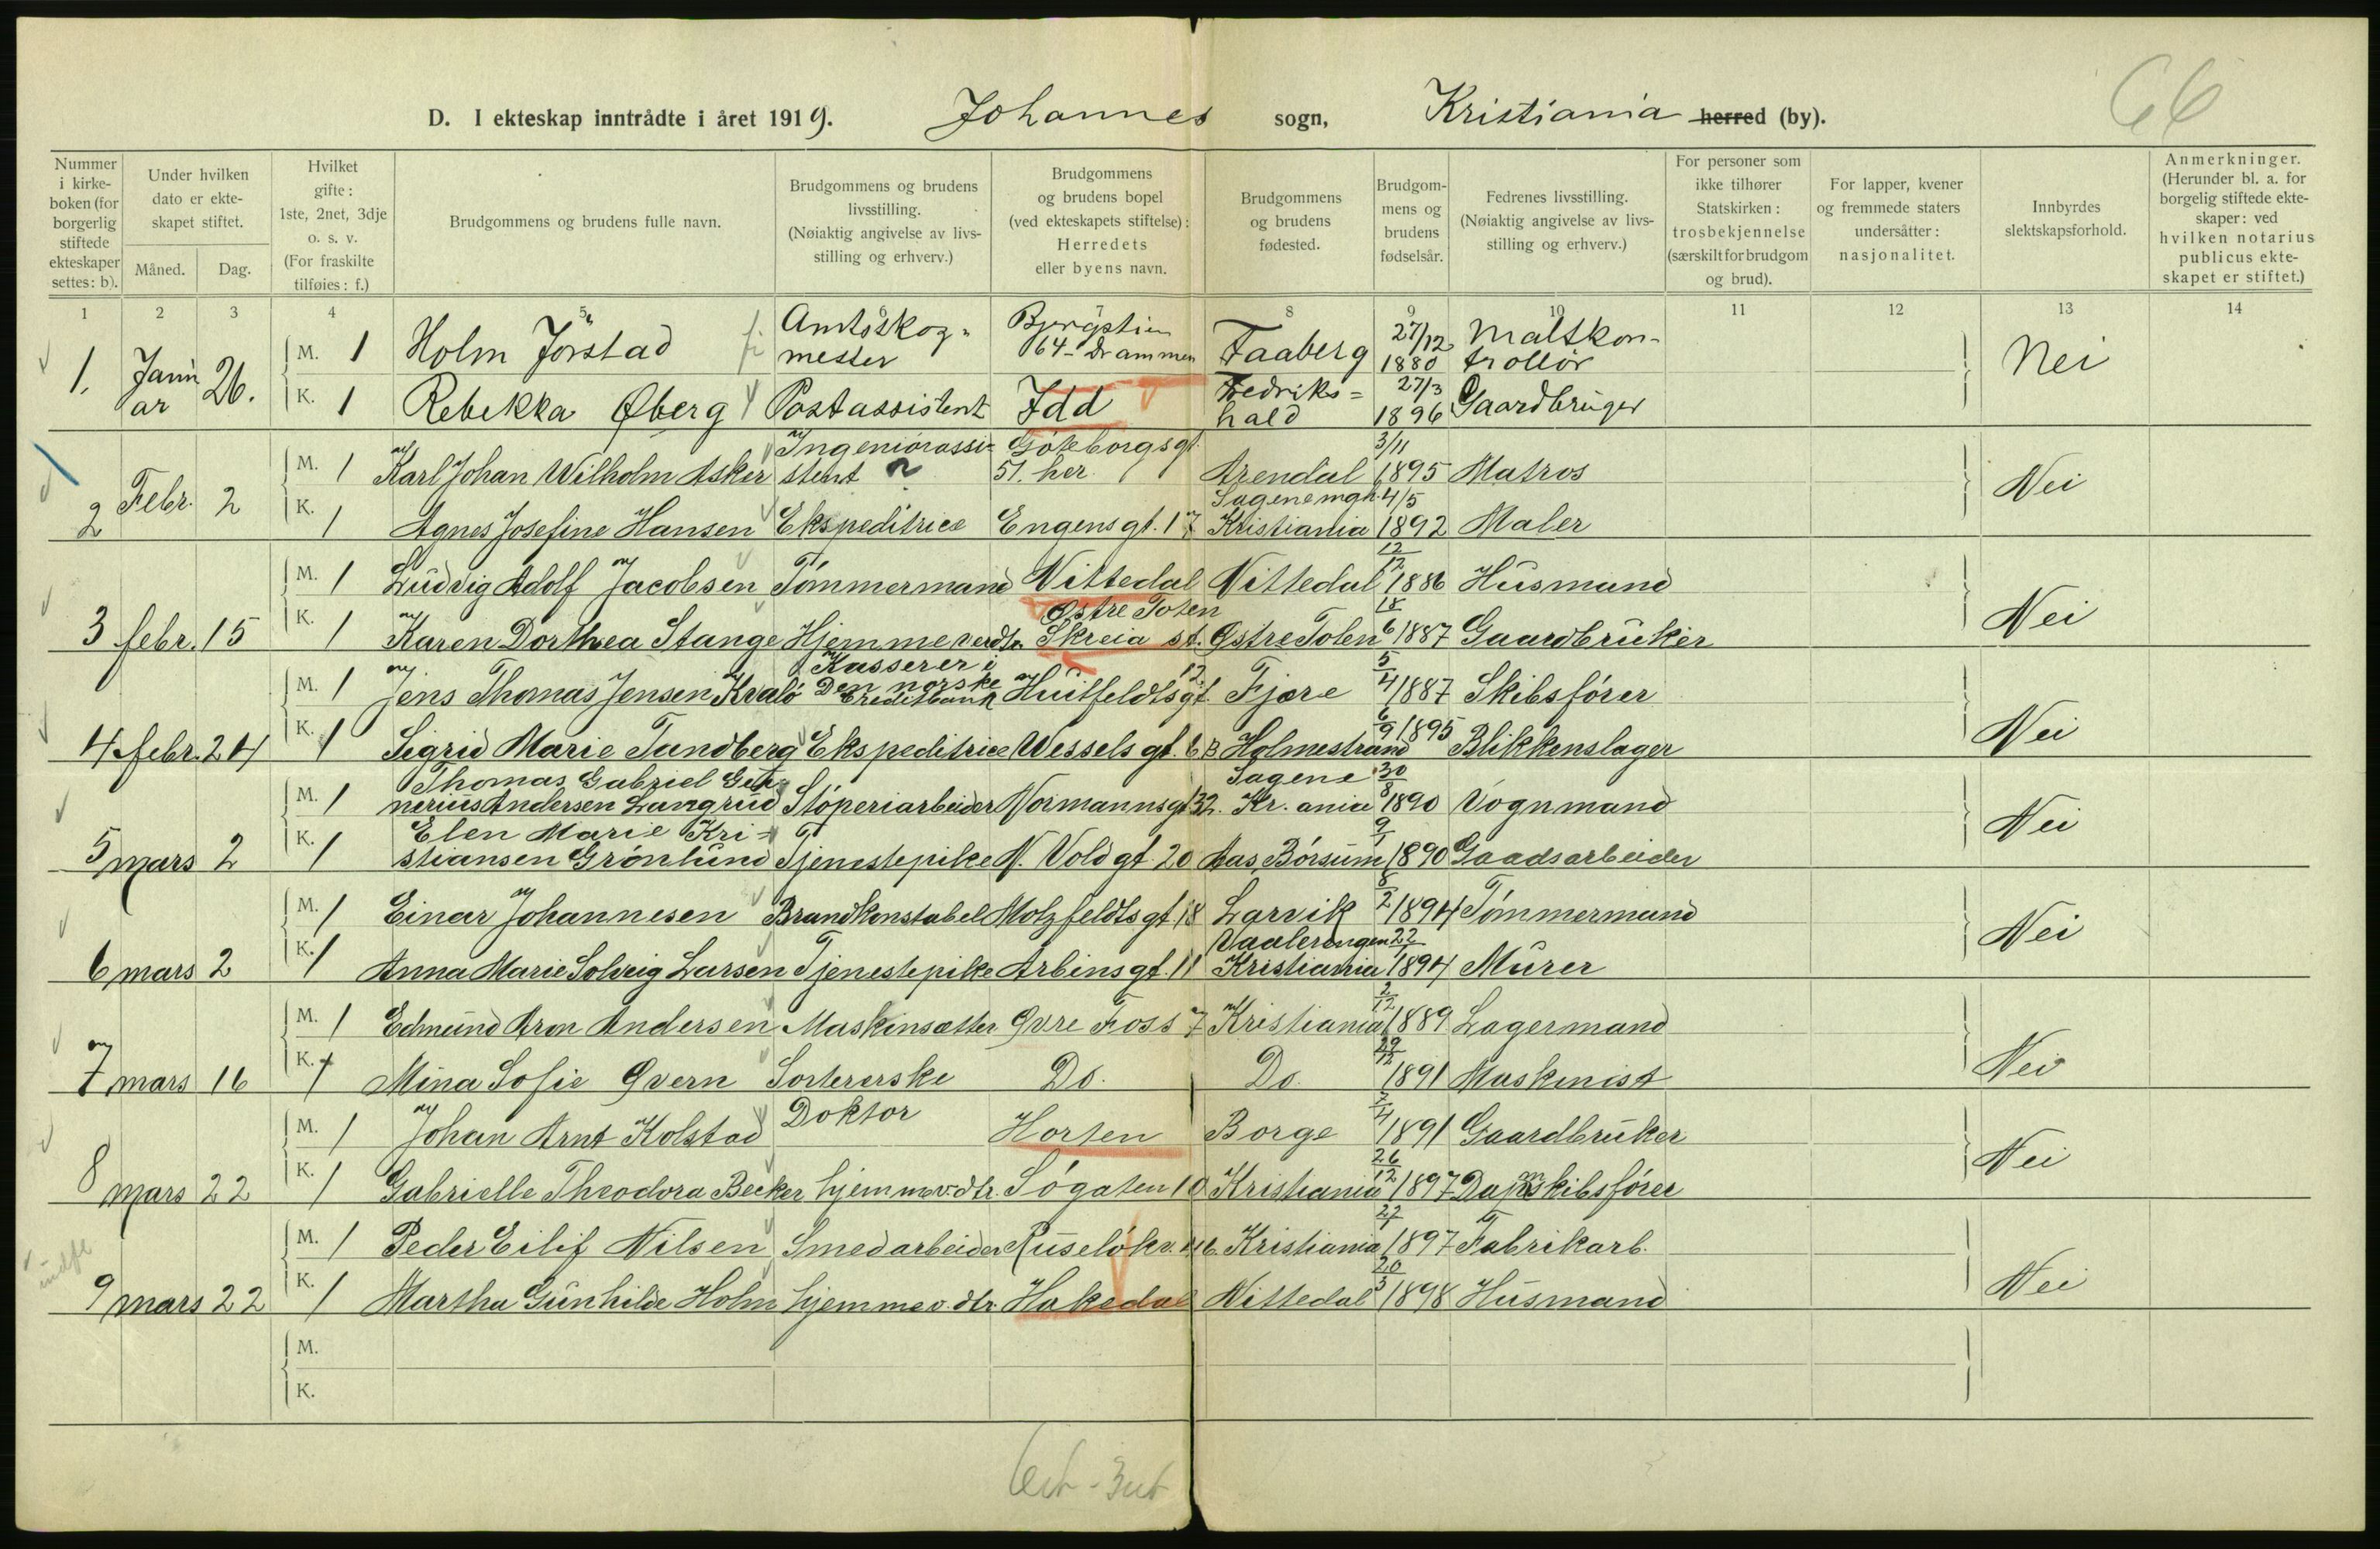 66
D. I ekteskap inntrådte i året 1919. Johannes sogn, Kristiania herred (by).
Nummer i kirkeboken (for borgerlig stiftede ekteskaper settes: b).
Under hvilken dato er ekteskapet stiftet.
Måned. Dag.
Hvilket gifte: 1ste, 2net, 3dje o. s. v. (For fraskilte tilføies: f.)
Brudgommens og brudens fulle navn.
Brudgommens og brudens livsstilling. (Nøiaktig angivelse av livsstilling og erhverv.)
Brudgommens og brudens bopel (ved ekteskapets stiftelse): Herredets eller byens navn.
Brudgommens og brudens fødested.
Brudgommens og brudens fødselsår.
Fedrenes livsstilling. (Nøiaktig angivelse av livsstilling og erhverv.)
For personer som ikke tilhører Statskirken: trosbekjennelse (særskilt for brudgom og brud).
For lapper, kvener og fremmede staters undersåtter: nasjonalitet.
Innbyrdes slektskapsforhold.
Anmerkninger. (Herunder bl. a. for borgelig stiftede ekteskaper: ved hvilken notarius publicus ekteskapet er stiftet.)
1 2 3 4 5 6 7 8 9 10 11 12 13 14
1. Januar 26. M. 1 Holm Jørstad Amtsskogmester Bjergstien 64 Drammen Faaberg 27/12 1880 Maltkontrollør Nei
K. 1 Rebekka Øberg Postassistent Idd Fredrikshald 27/3 1896 Gaardbruger
2 Febr. 2 M. 1 Karl Johan Wilholm Asker Ingeniørassistent Göteborgsgt. 51. her. Arendal 3/11 1895 Matros Nei
K. 1 Agnes Josefine Hansen Ekspeditrice Engensgt. 17 Sagenemgh. Kristiania 4/5 1892 Maler
3 febr. 15 M. 1 Ludvig Adolf Jacobsen Tømmermand Nittedal Nittedal 12/12 1886 Husmand Nei
K. 1 Karen Dorthea Stange Hjemmev. dtr. Østre Toten Skreia st. Østre Toten 18/6 1887 Gaardbruker
4 febr. 24 M. 1 Jens Thomas Jensen Kvalø Kasserer i Den norske Creditbank Huitfeldtsgt. 12. Fjære 5/4 1887 Skibsfører Nei
K. 1 Sigrid Marie Tandberg Ekspeditrice Wessels gt. 6 B Holmestrand 6/9 1895 Blikkenslager
5 mars 2 M. 1 Thomas Gabriel Gunnerius Andersen Langrud Støperiarbeider Normannsgt 32. Sagene Kr.ania 30/8 1890 Vognmand Nei
K. 1 Elen Marie Kristiansen Grønlund Tjenestepike N. Voldgt. 20 Aas, Børsum 9/1 1890 Gaadsarbeider
6 mars 2 M. 1 Einar Johannesen Brandkonstabel Motzfeldtsgt. 18 Larvik 8/2 1894 Tømmermand Nei
K. 1 Anna Marie Solveig Larsen Tjenestepike Arbinsgt. 11 Vaalerengen Kristiania 22/1 1894 Murer
7 mars 16 M. 1 Edmund Aron Andersen Maskinsætter Øvre Foss 7 Kristiania 2/12 1889 Lagermand Nei
K. 1 Mina Sofie Qvern Sortererske Do. Do. 29/12 1891 Maskinist
8 mars 22 M. 1 Johan Arnt Kolstad Doktor Horten Borge 7/4 1891 Gaardbruker Nei
K. 1 Gabrielle Theodora Becker hjemmev. dtr. Søgaten 10 Kristiania 26/12 1897 Dampskibsfører
9 mars 22 M. 1 Peder Eilif Nilsen Smedarbeider Ruseløkv. 46 Kristiania 27/1 1897 Fabrikarb. Nei
K. 1 Martha Gunhilde Holm hjemmev. dtr. Hakedal Nittedal 20/3 1898 Husmand
M.
K.